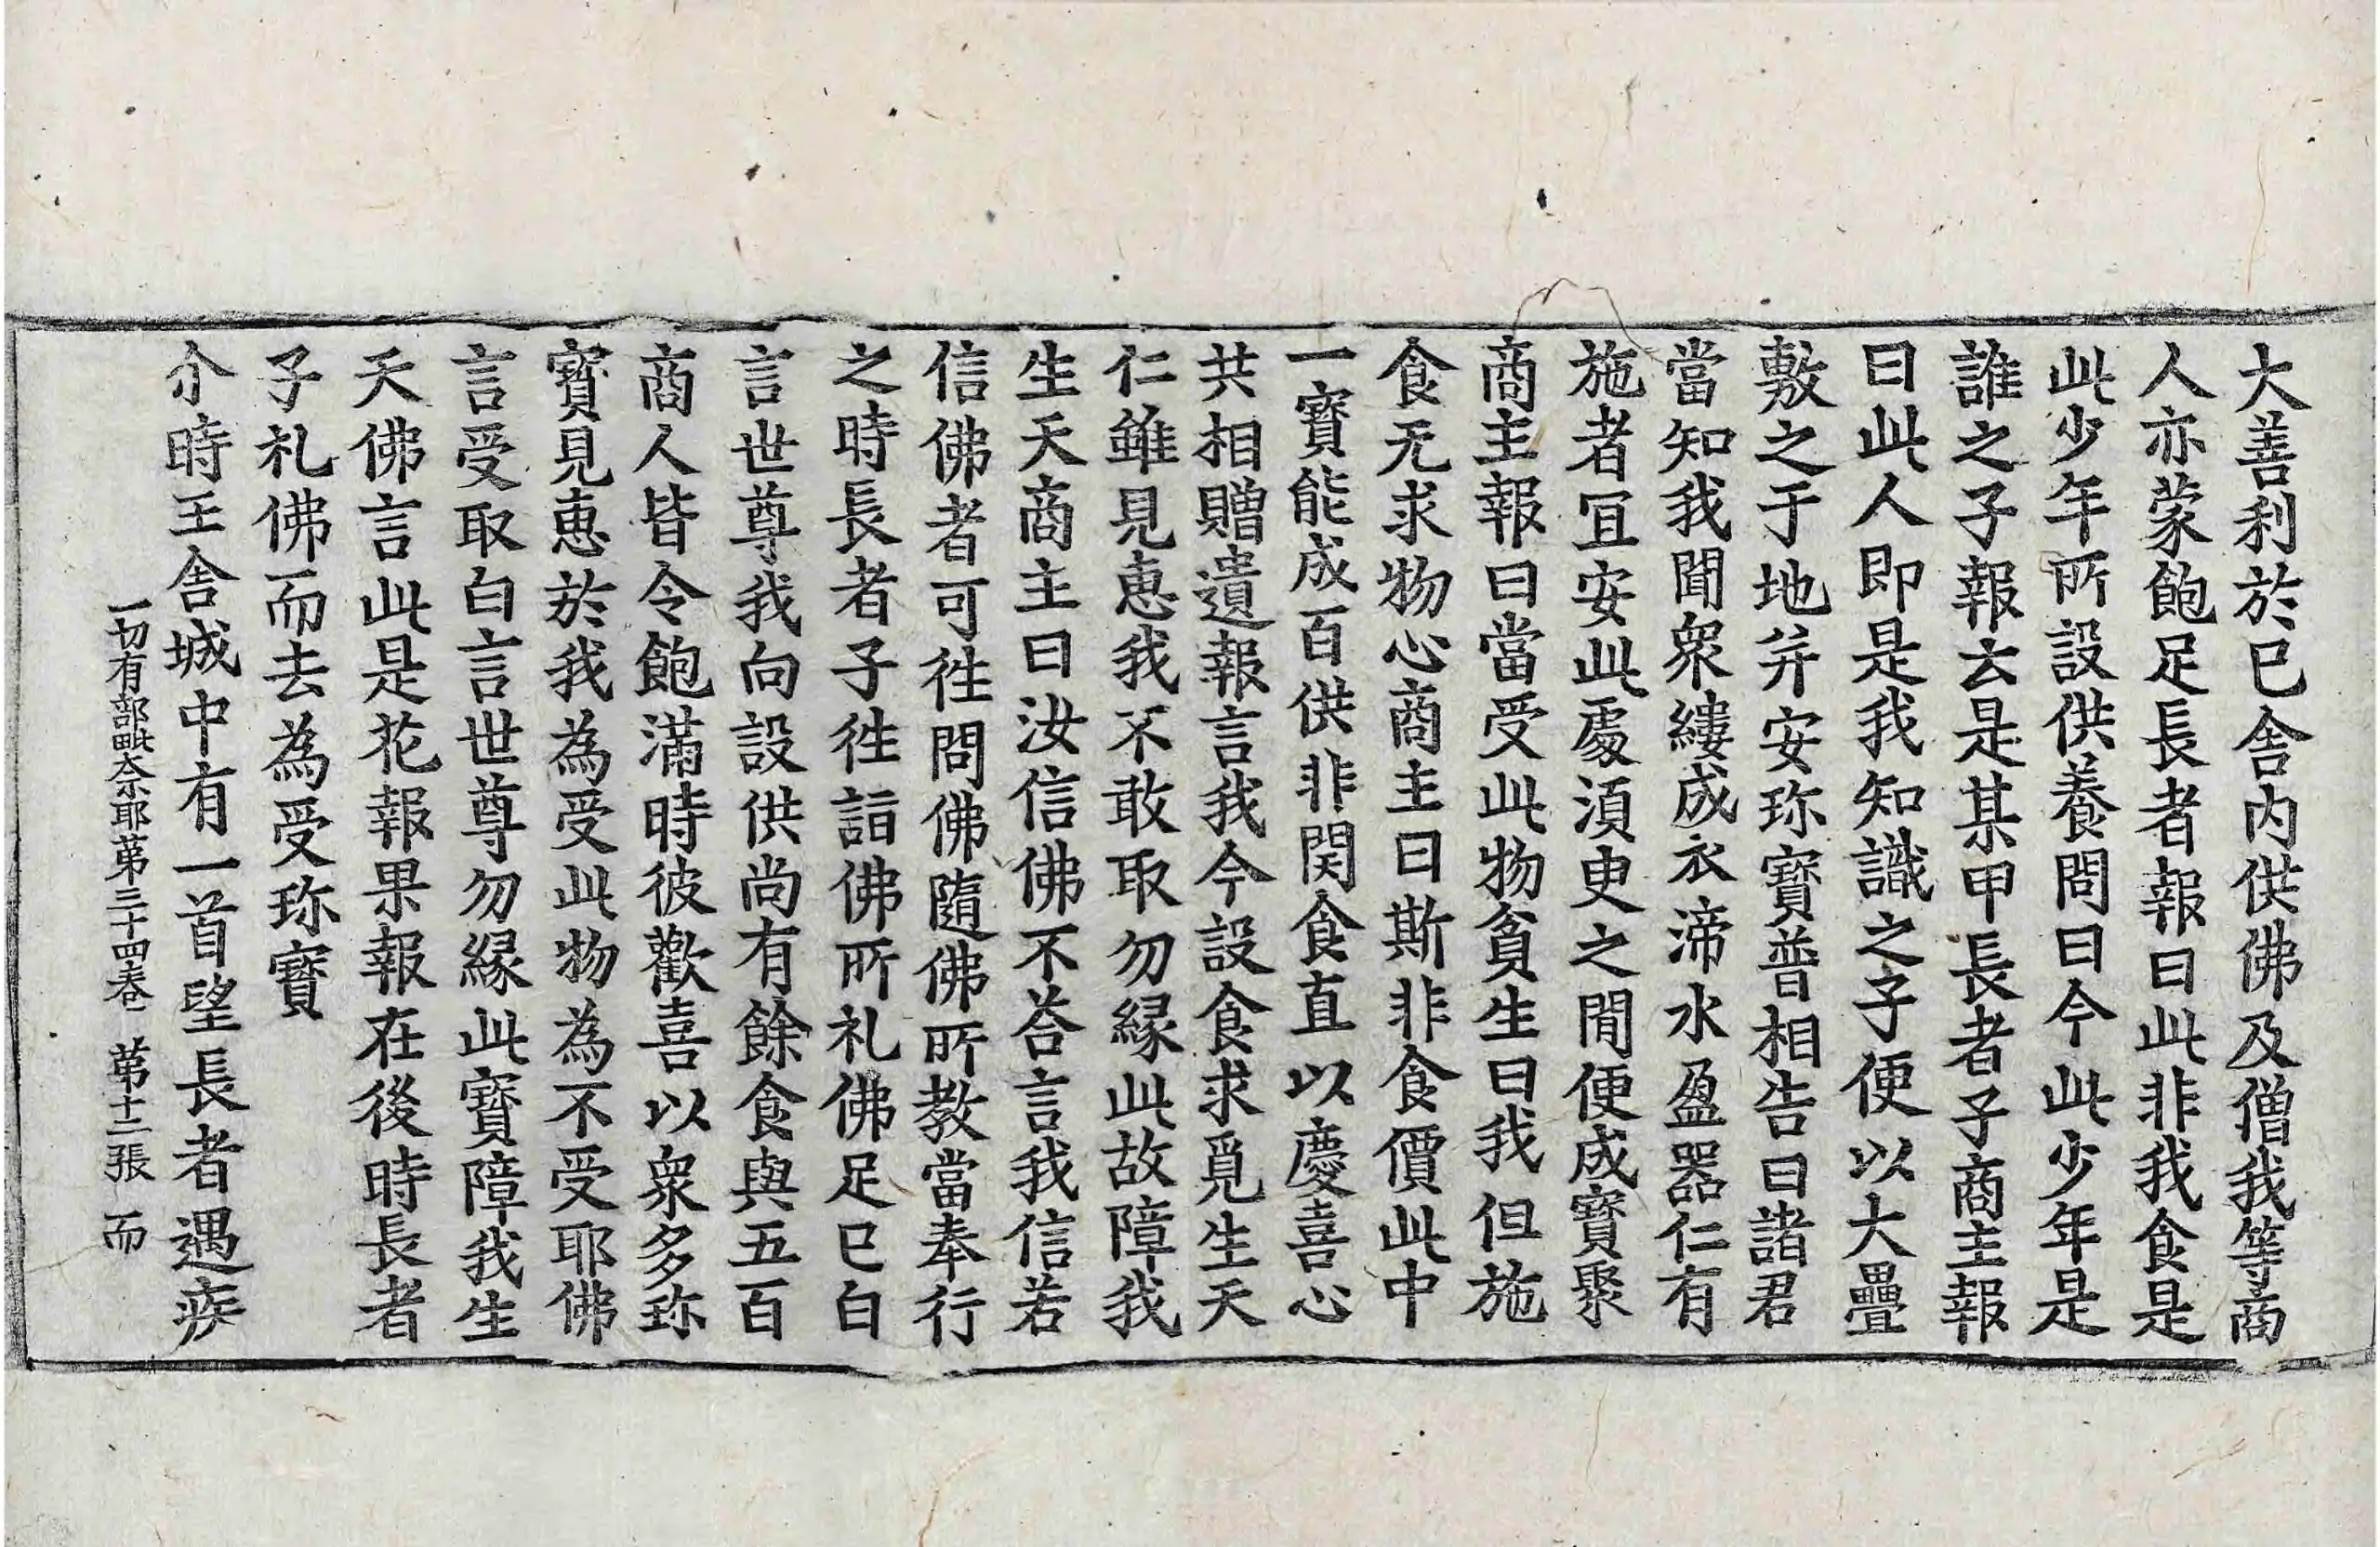 大善利於已舍内供佛及僧我等商
人亦蒙飽足長者報曰此非我食是
此少年所設供養問曰今此少年是
誰之子報云是某甲長者子商主報
曰此人即是我知識之子便以大疊
敷之于地并安珎寶普相告曰諸君
當知我聞衆縷成衣渧水盈器仁有
施者宜安此處湏臾之間便成寶聚
商主報曰當受此物貧生曰我但施
食无求物心商主曰斯非食價此中
一寶能成百供非関食直以慶喜心
共相贈遺報言我今設食求覓生天
仁雖見惠我不敢取勿縁此故障我
生天商主曰汝信佛不荅言我信若
信佛者可徃問佛隨佛所教當奉行
之時長者子徃詣佛所礼佛足已白
言世尊我向設供尚有餘食與五百
商人皆令飽滿時彼歡喜以衆多珎
寶見惠於我為受此物為不受耶佛
言受取白言世尊勿縁此寶障我生
天佛言此是花報果報在後時長者
子礼佛而去為受珎寶
尒時王舍城中有一首望長者遇疾
一切有部毗奈耶苐三十四卷 苐十二張 而